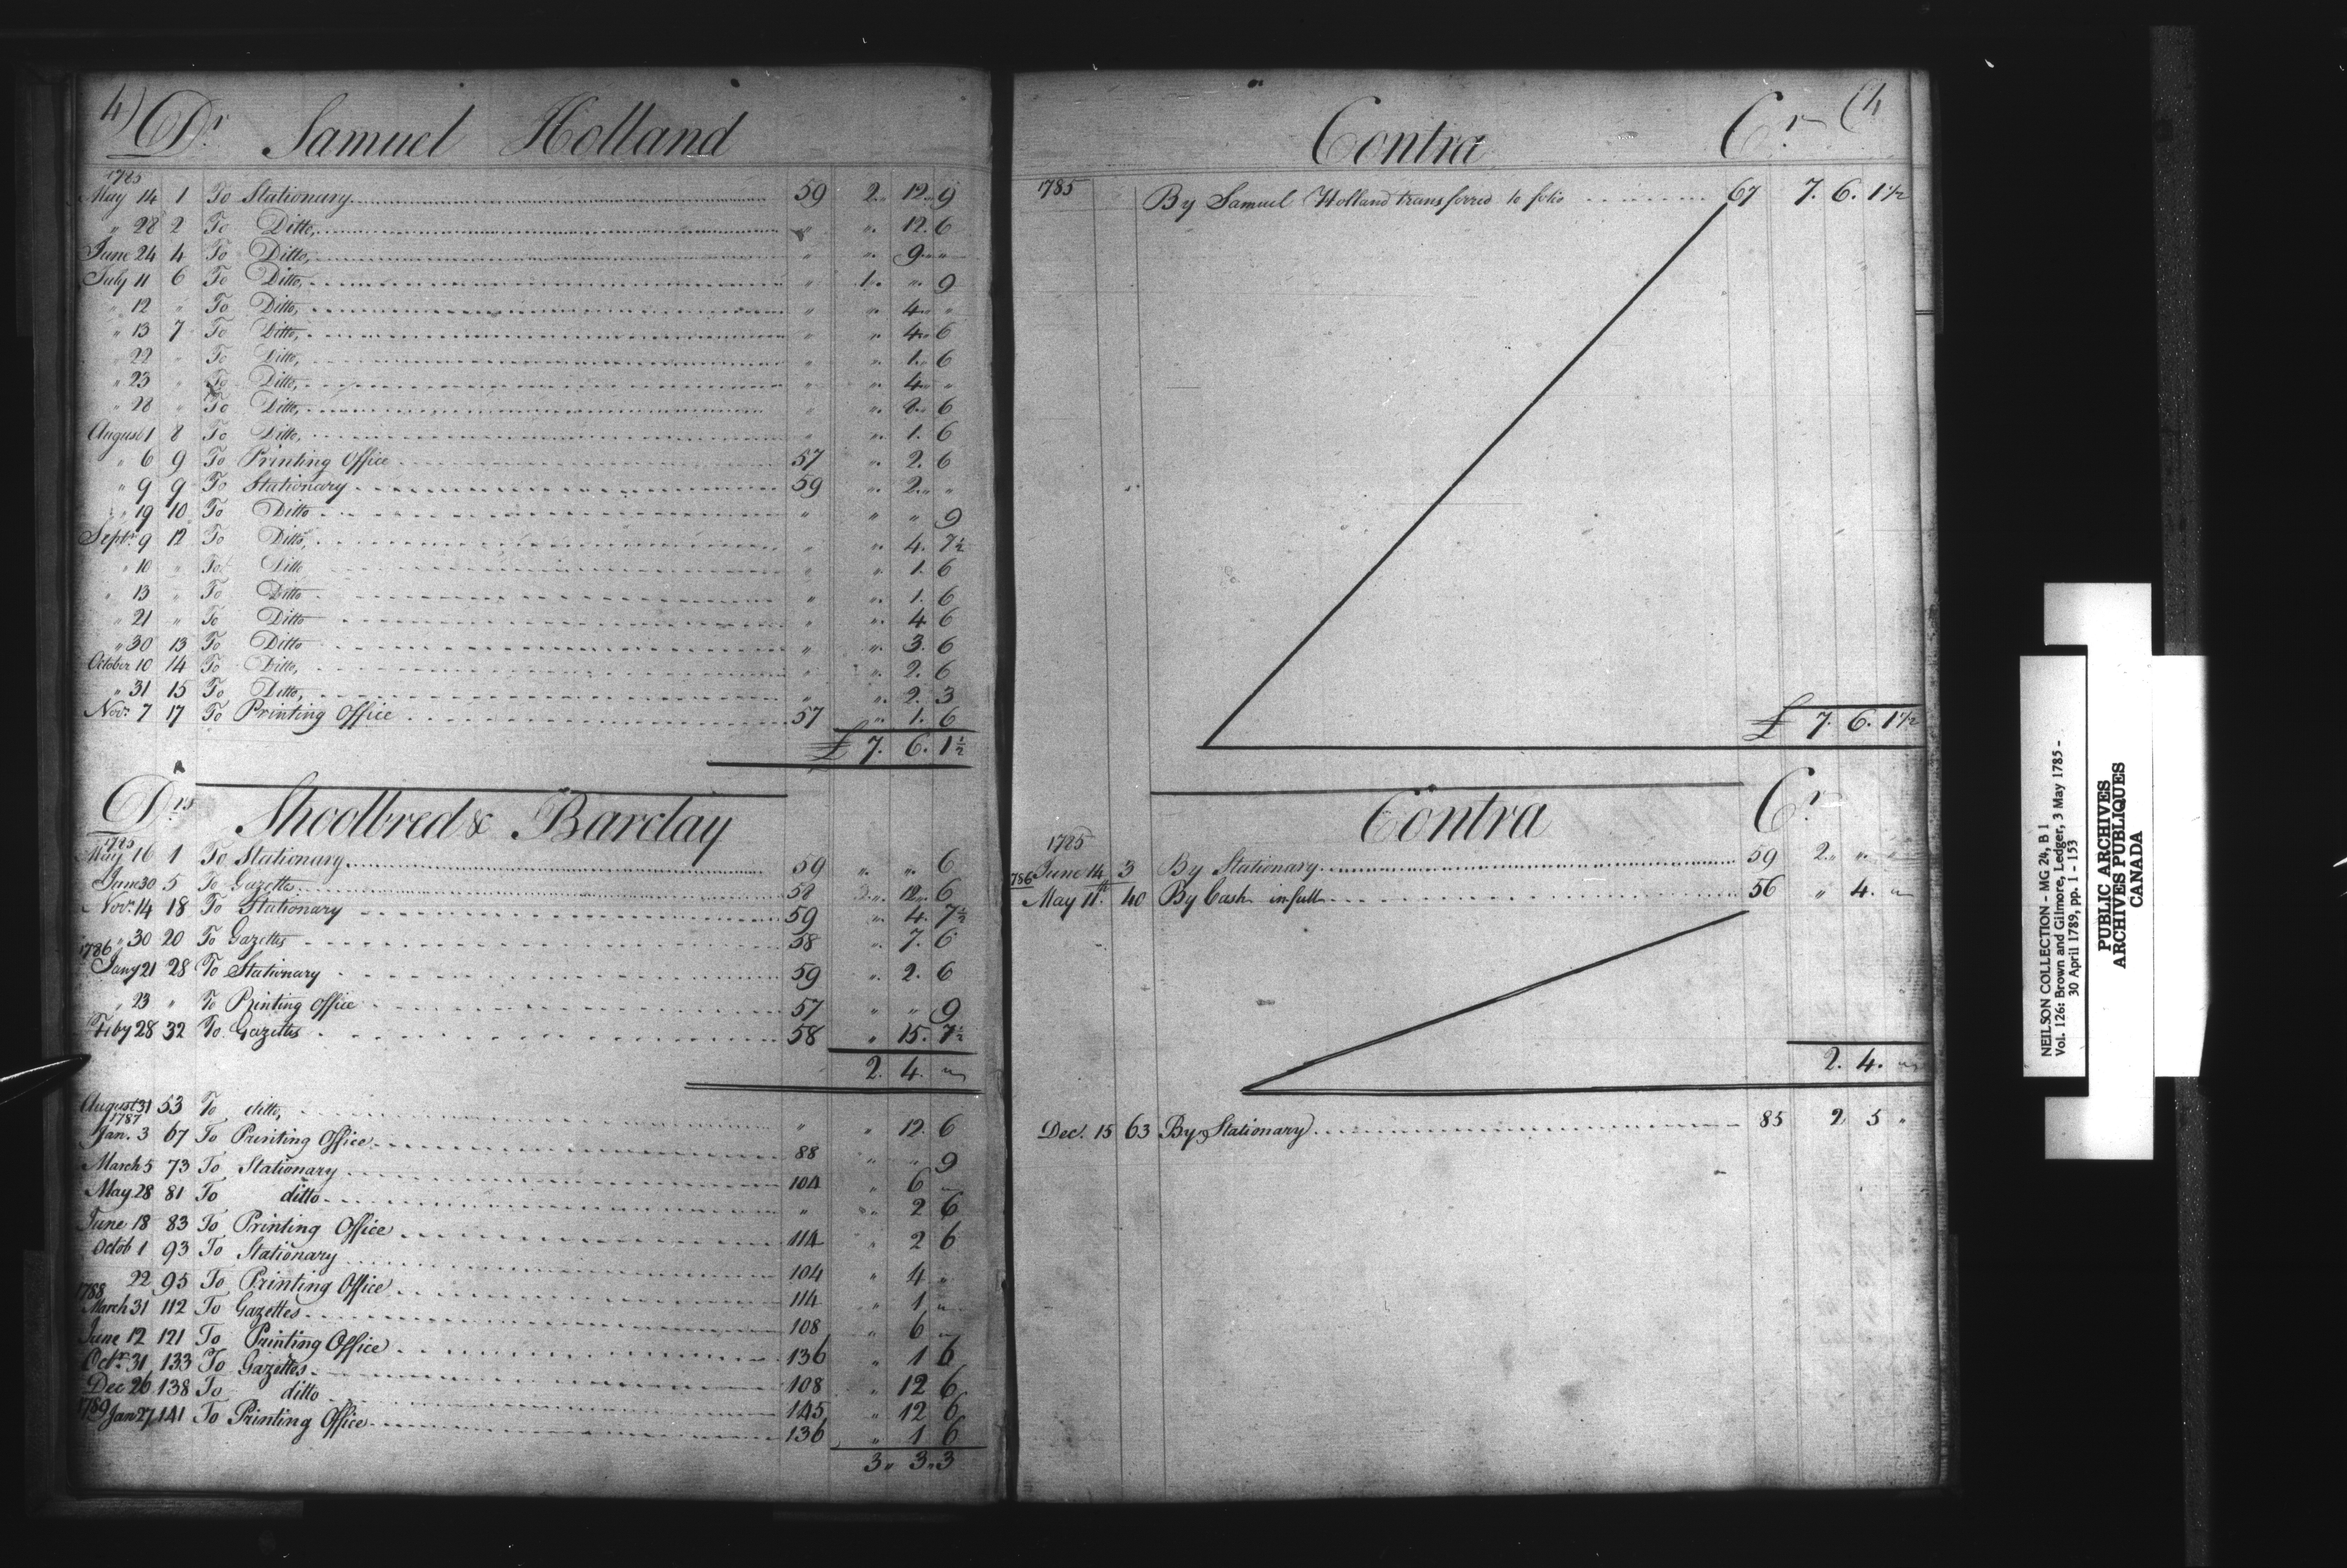 4) Dr. Samuel Holland
1785
May 14 1 To Stationary 59 2 " 12 " 9
" 28 2 To Ditto, " " 12. 6
June 24 4 To Ditto, " " 9 " "
July 11 6 To Ditto, " 1 " " 9
" 12 " To Ditto, " " 4 " "
" 13 7 To Ditto, " " 4 " 6
" 22 " To Ditto, " " 1 " 6
" 23 " To Ditto, " " 4 " "
" 28 " To Ditto, " " 6
August 1 8 To Ditto, " " 1. 6
" 6 9 To Printing Office 57 " 2. 6
" 9 9 To Stationary 59 " 2 " "
" 19 10 To Ditto " " " 9
Septr. 9 12 To Ditto, " " 4. 7½
" 10 " To Ditto " " 1. 6
" 13 " To Ditto " " 1. 6
" 21 " To Ditto " " 4 6
" 30 13 To Ditto " " 3. 6
October 10 14 To Ditto, " " 2. 6
" 31 15 To Ditto, " " 2. 3
Novr. 7 17 To Printing Office 57 " 1. 6
£ 7. 6. 1½
Drs. Shoolbred & Barclay
1785
May 16 1 To Stationary 59 " " 6
June 30 5 To Gazettes 58 " 12 " 6
Novr. 14 18 To Stationary 59 " 4. 7½
" 30 20 To Gazettes 58 " 7. 6
1786
Jany 21 28 To Stationary 59 " 2. 6
" 23 " To Printing Office 57 " " 9
Feby 28 32 To Gazettes 58 " 15. 7½
2. 4. "
August 31 53 To ditto, " " 12. 6
1787
Jan. 3 67 To Printing Office 88 " " 9
March 5 73 To Stationary 104 " 6 "
May 28 81 To ditto " " 2 6
June 18 83 To Printing Office 114 " 2 6
Octob 1 93 To Stationary 104 " 4 "
22 95 To Printing Office 114 " 1 "
1788
March 31 112 To Gazettes 108 " 6 "
June 12 121 To Printing Office 136 " 1 6
Octr. 31 133 To Gazettes 108 " 12 6
Dec 26 138 To ditto 145 " 12 6
1789 Jan 27 141 To Printing Office 136 " 1 6
3 " 3 " 3
Contra Cr. (4
1785 By Samuel Holland transferred to folio 67 7. 6. 1½
£ 7. 6. 1½
Contra Cr.
1785
June 14 3 By Stationary 59 2 " " "
1786
May 11th. 40 By Cash in full 56 " 4. "
2. 4. "
Dec. 15 63 By Stationary 85 2 5 "
NEILSON COLLECTION - MG 24, B 1
Vol. 126: Brown and Gilmore, Ledger, 3 May 1785 -
30 April 1789, pp. 1 - 153
PUBLIC ARCHIVES
ARCHIVES PUBLIQUES
CANADA